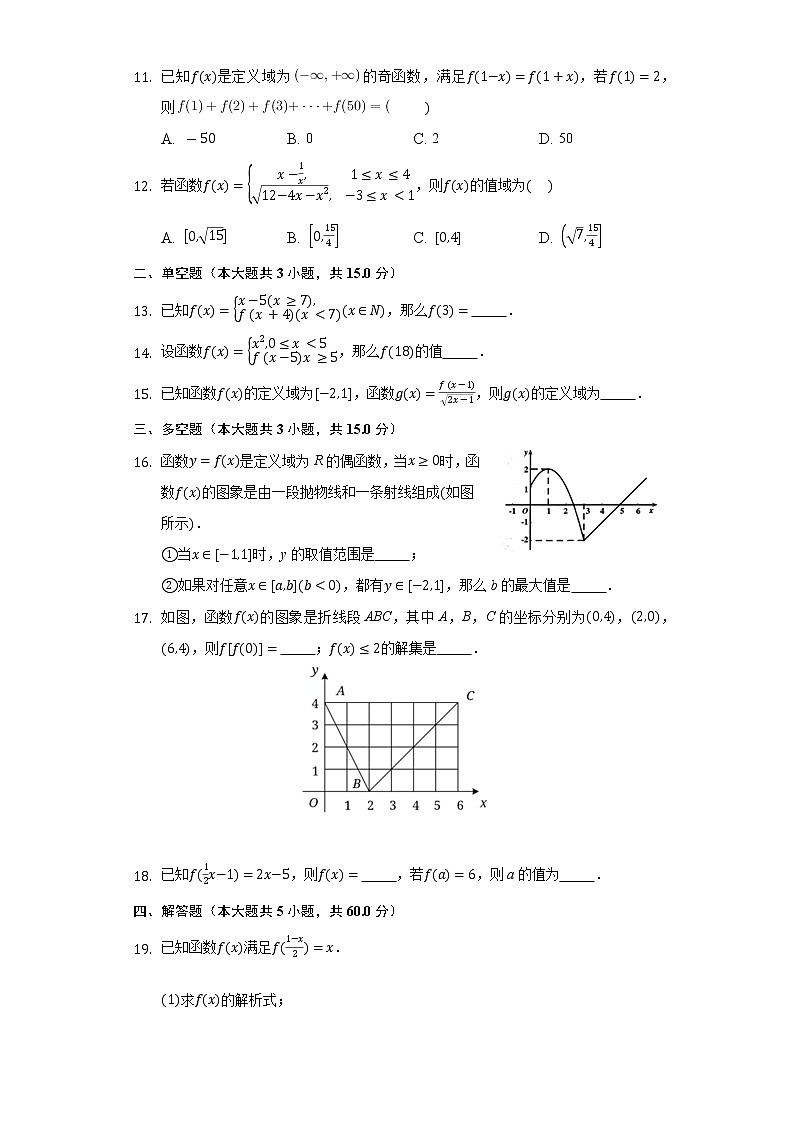 11. 已知f(x)是定义域为(−∞,+∞)的奇函数,满足f(1−x)=f(1+x),若f(1)=2,
则f(1)+f(2)+f(3)+···+f(50)=( )
A. −50 B. 0 C. 2 D. 50
12. 若函数f(x)={x−1/x, 1≤x≤4; √(12−4x−x²), −3≤x<1,则f(x)的值域为( )
A. [0,√15] B. [0,15/4] C. [0,4] D. (√7,15/4]
二、单空题(本大题共3小题,共15.0分)
13. 已知f(x)={x−5(x≥7), f(x+4)(x<7)(x∈N),那么f(3)=_____.
14. 设函数f(x)={x²,0≤x<5 f(x−5)x≥5,那么f(18)的值_____.
15. 已知函数f(x)的定义域为[−2,1],函数g(x)=f(x−1)/√(2x−1),则g(x)的定义域为_____.
三、多空题(本大题共3小题,共15.0分)
16. 函数y=f(x)是定义域为R的偶函数,当x≥0时,函
数f(x)的图象是由一段抛物线和一条射线组成(如图
所示).
①当x∈[−1,1]时,y的取值范围是_____;
②如果对任意x∈[a,b](b<0),都有y∈[−2,1],那么b的最大值是_____.
y
2
1
-1 O 1 2 3 4 5 6 x
-1
-2
17. 如图,函数f(x)的图象是折线段ABC,其中A,B,C的坐标分别为(0,4),(2,0),
(6,4),则f[f(0)]=_____;f(x)≤2的解集是_____.
y
A C
4
3
2
1
B
O 1 2 3 4 5 6 x
18. 已知f(1/2x−1)=2x−5,则f(x)=_____,若f(a)=6,则a的值为_____.
四、解答题(本大题共5小题,共60.0分)
19. 已知函数f(x)满足f((1−x)/2)=x.
(1)求f(x)的解析式;